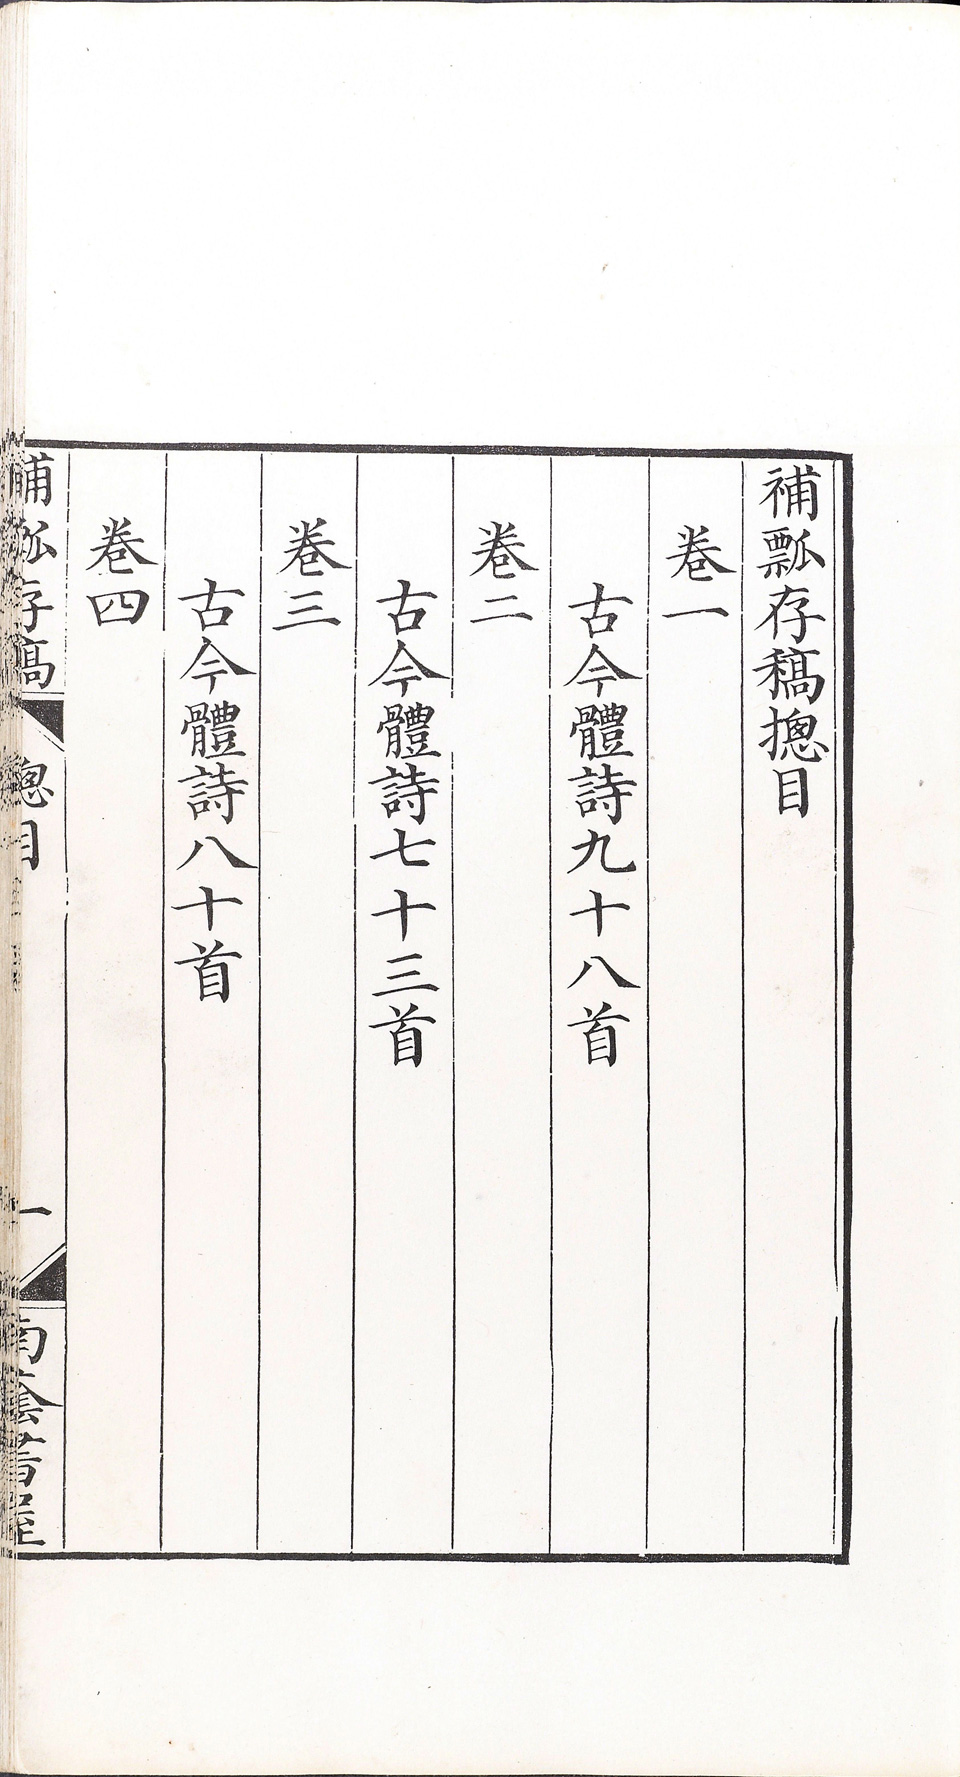 補瓢存稿摠目
卷一
古今體詩九十八首
卷二
古今體詩七十三首
卷三
古今體詩八十首
卷四
補瓢存稿
摠目
一